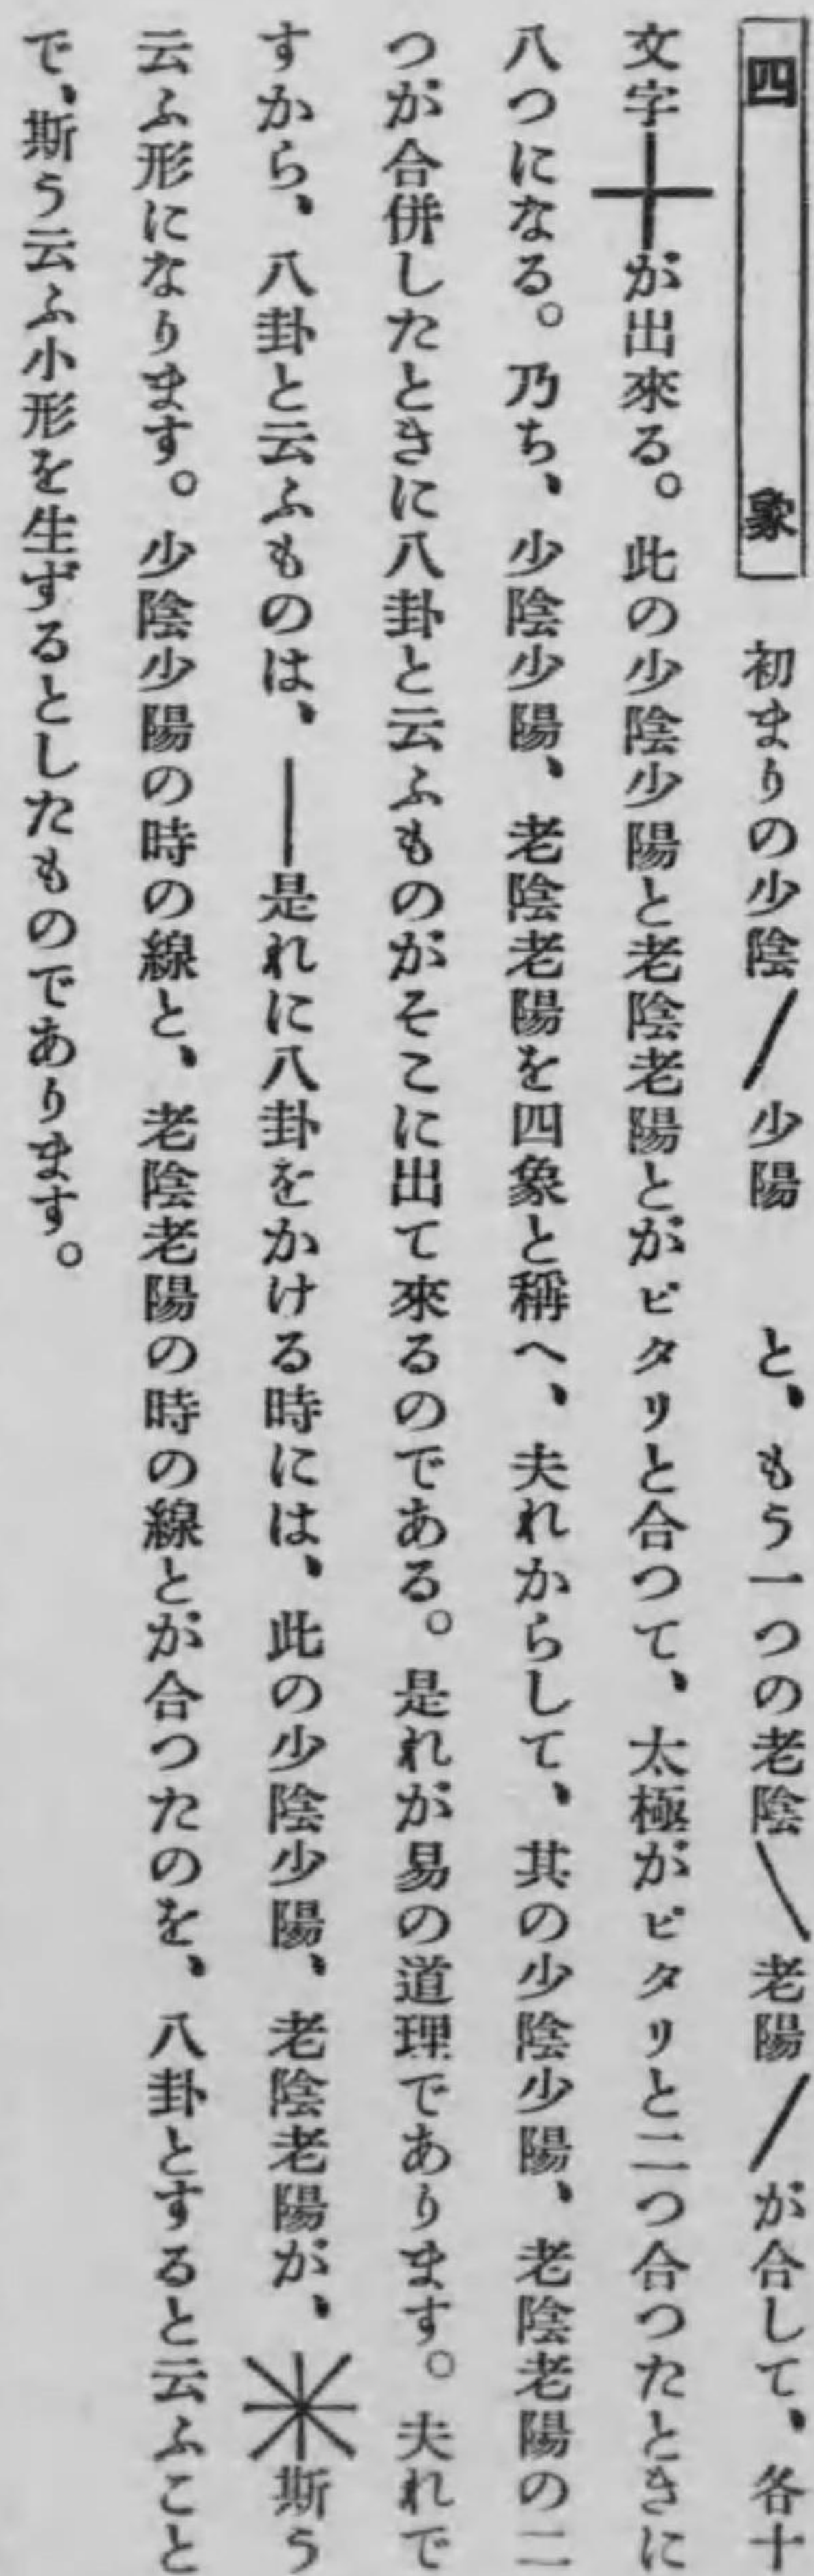 四象
初まりの少陰／少陽　と、もう一つの老陰＼老陽／が合して、各十
文字┼が出來る。此の少陰少陽と老陰老陽とがピタリと合つて、太極がピタリと二つ合つたときに
八つになる。乃ち、少陰少陽、老陰老陽を四象と稱へ、夫れからして、其の少陰少陽、老陰老陽の二
つが合併したときに八卦と云ふものがそこに出て來るのである。是れが易の道理であります。夫れで
すから、八卦と云ふものは、―是れに八卦をかける時には、此の少陰少陽、老陰老陽が、✳斯う
云ふ形になります。少陰少陽の時の線と、老陰老陽の時の線とが合つたのを、八卦とすると云ふこと
で、斯う云ふ小形を生ずるとしたものであります。